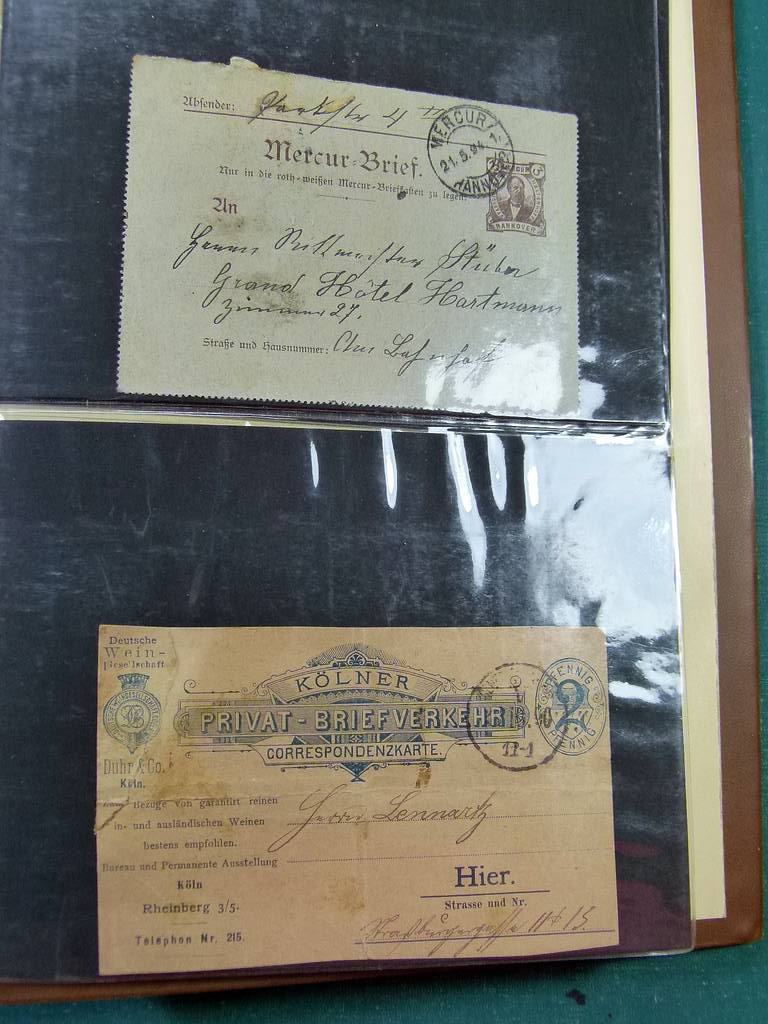 Absender: Parkstr 4 II
Mercur-Brief.
Nur in die roth-weißen Mercur-Briefkasten zu legen.
MERCUR
21.5.94
HANNOVER
5
HANNOVER
An
Herrn Rittmeister Stüber
Grand Hôtel Hartmann
Zimmer 27.
Straße und Hausnummer: Am Bahnhof
Deutsche
Wein-
Gesellschaft
Duhr & Co.
Köln.
KÖLNER
PRIVAT-BRIEFVERKEHR
CORRESPONDENZKARTE.
11-1
PFENNIG
2
PFENNIG
Bezuge von garantirt reinen
in- und ausländischen Weinen
bestens empfohlen.
Bureau und Permanente Ausstellung
Köln
Rheinberg 3/5.
Telephon Nr. 215.
Herrn Lennartz
Hier.
Strasse und Nr.